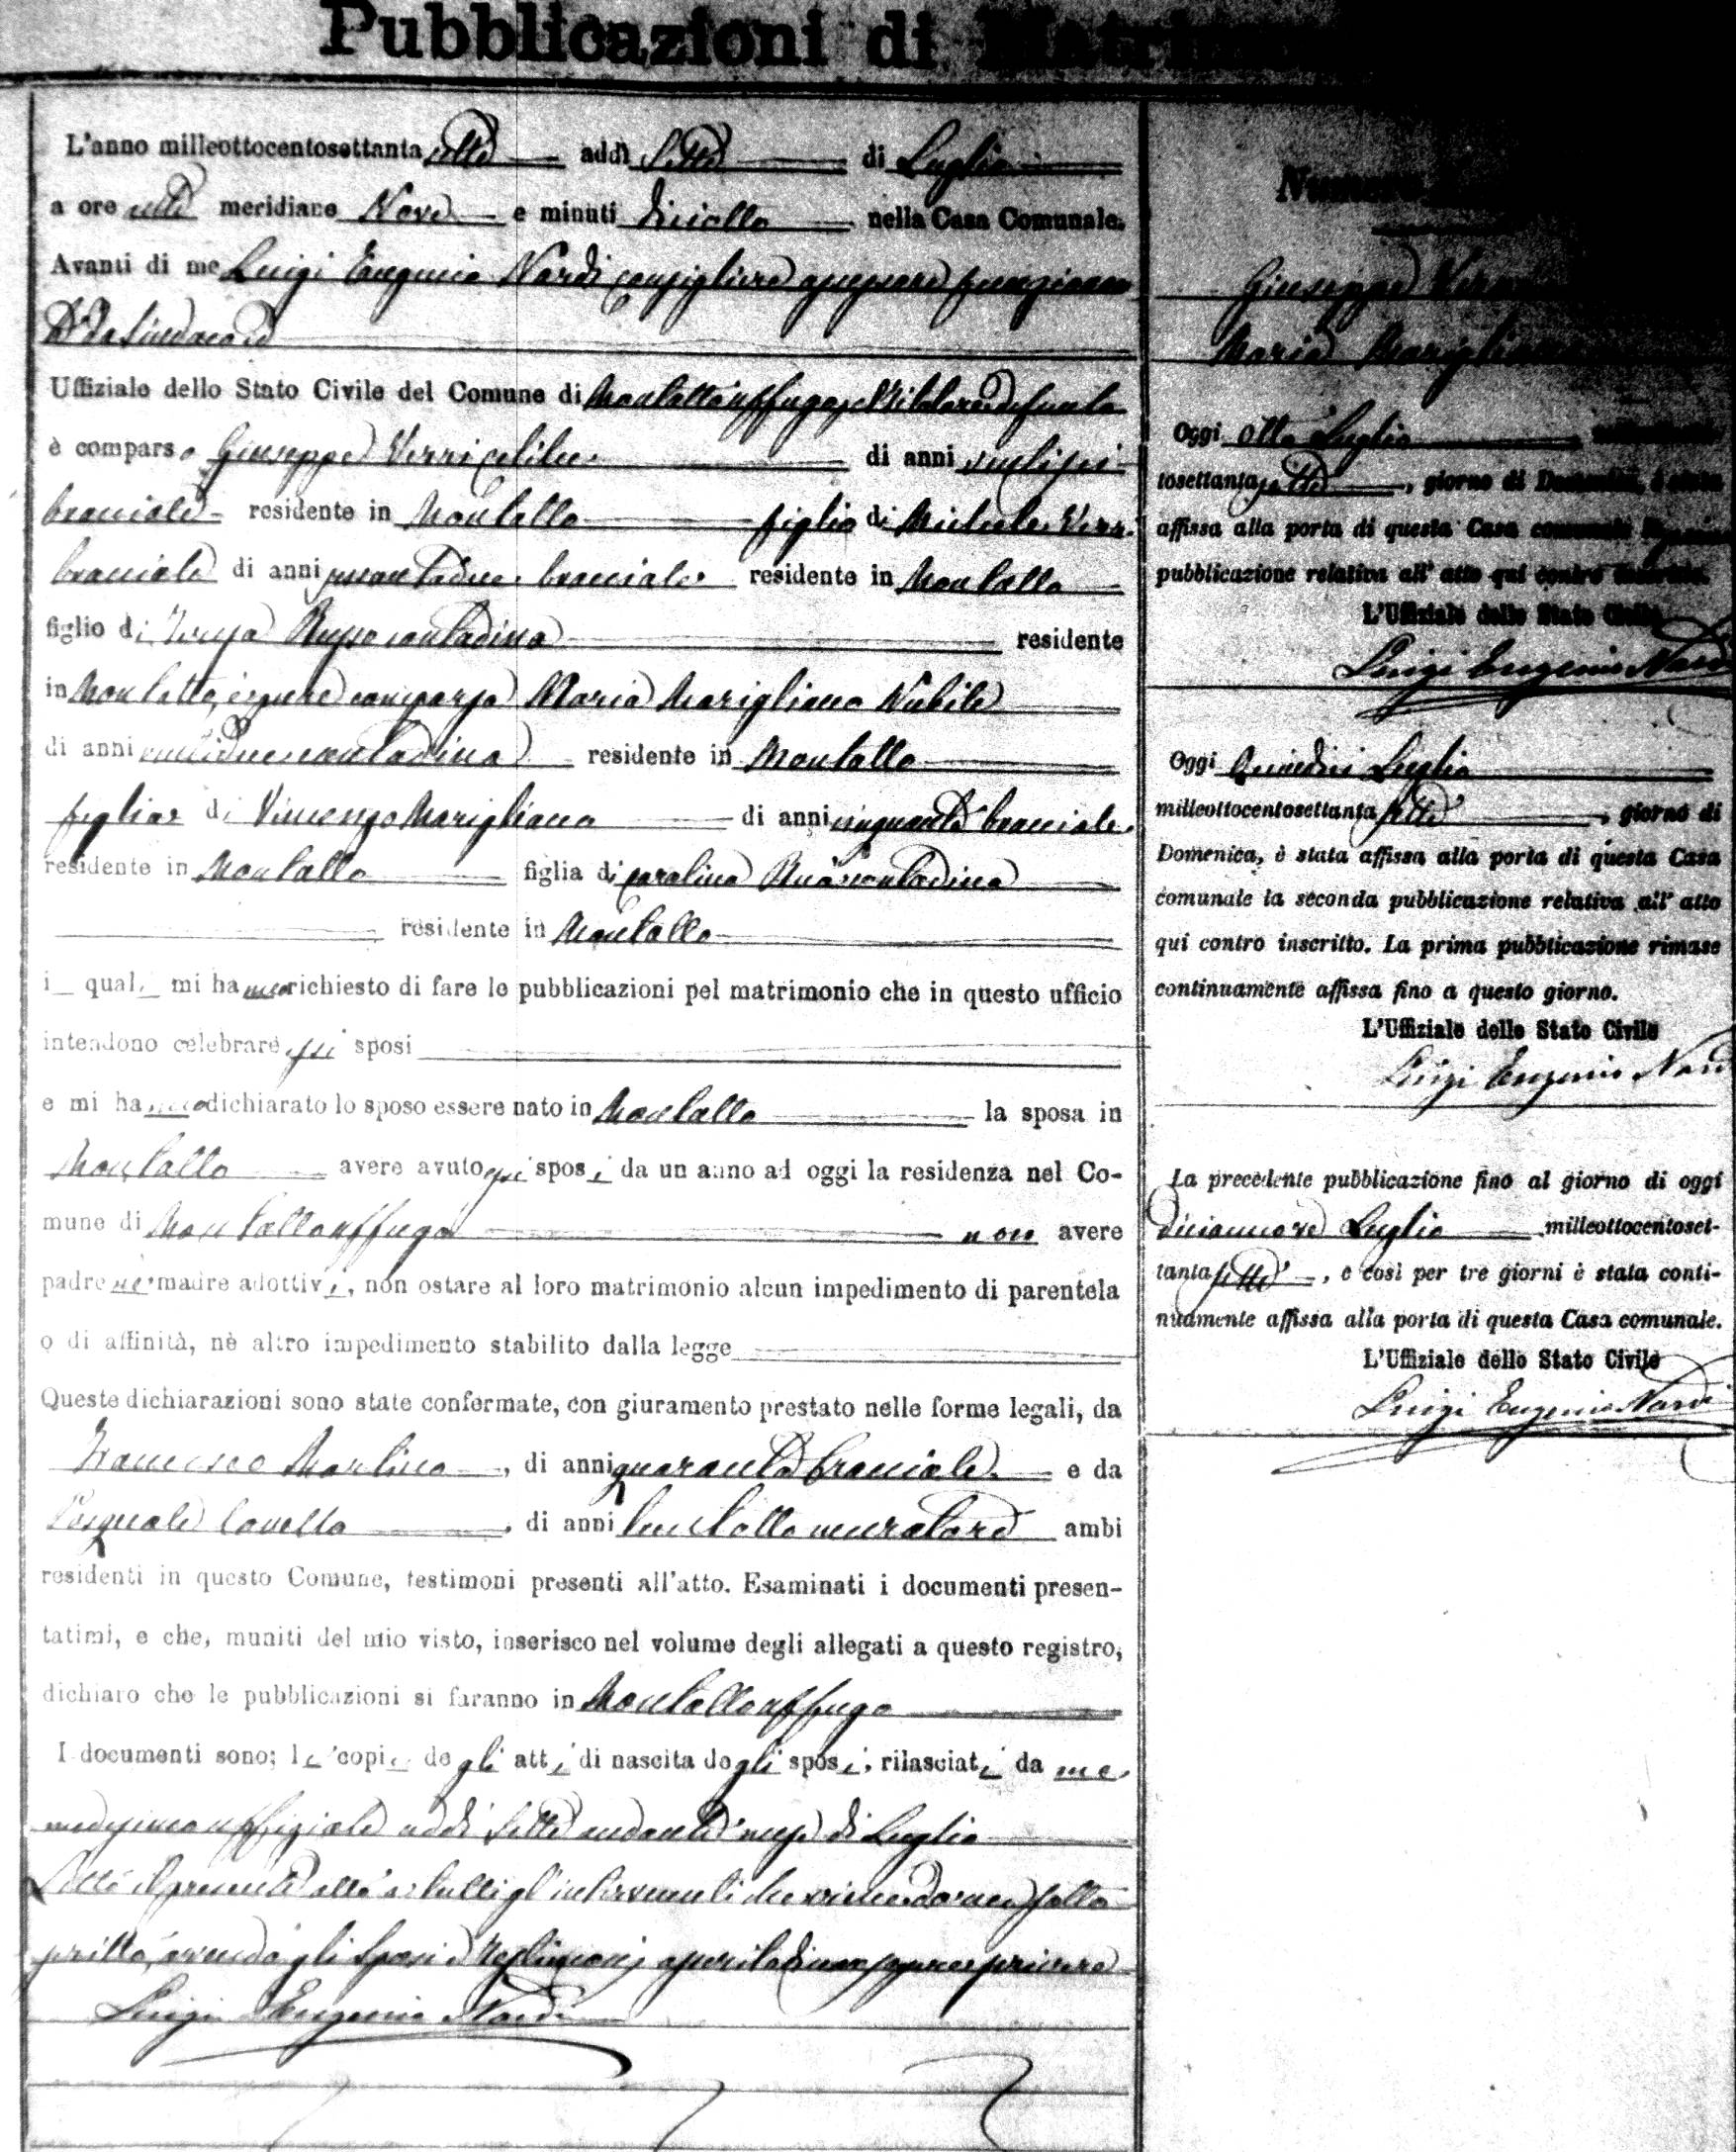 Pubblicazioni di
L'anno milleottocentosettanta sette addì Sette di Luglio
a ore anti meridiane Nove e minuti diciotto nella Casa Comunale.
Avanti di me Luigi Eugenio Nardi consigliere
Uffiziale dello Stato Civile del Comune di Montaltouffugo
è comparso Giuseppe Verri celibe di anni ventisei
bracciale residente in Montalto figlio di Michele Verri
bracciale di anni bracciale residente in Montalto
figlio di Teresa Russo contadina residente
in Montalto, è pure comparsa Maria Marigliano Nubile
di anni ventidue contadina residente in Montalto
figlia di Vincenzo Marigliano di anni cinquanta bracciale
residente in Montalto figlia di Carolina contadina
residente in Montalto
i quali mi hanno richiesto di fare le pubblicazioni pel matrimonio che in questo ufficio
intendono celebrare essi sposi
e mi hanno dichiarato lo sposo essere nato in Montalto la sposa in
Montalto avere avuto essi sposi da un anno ad oggi la residenza nel Co-
mune di Montaltouffugo non avere
padre nè madre adottivi, non ostare al loro matrimonio alcun impedimento di parentela
o di affinità, nè altro impedimento stabilito dalla legge
Queste dichiarazioni sono state confermate, con giuramento prestato nelle forme legali, da
Francesco Martino, di anni quaranta bracciale e da
Pasquale, di anni muratore ambi
residenti in questo Comune, testimoni presenti all'atto. Esaminati i documenti presen-
tatimi, e che, muniti del mio visto, inserisco nel volume degli allegati a questo registro,
dichiaro che le pubblicazioni si faranno in Montaltouffugo
I documenti sono; le copie degli atti di nascita degli sposi, rilasciati da me
medesimo uffiziale addì sette andante mese di Luglio
Letto il presente atto a tutti gl'intervenuti
avendo gli Sposi e Testimonj
Luigi Eugenio Nardi
Giuseppe
Maria
Oggi otto Luglio
tosettanta sette, giorno di
affissa alla porta di questa Casa
pubblicazione relativa all'atto qui contro
L'Uffiziale dello Stato Civile
Luigi Eugenio Nardi
Oggi Quindici Luglio
milleottocentosettanta sette, giorno di
Domenica, è stata affissa alla porta di questa Casa
comunale la seconda pubblicazione relativa all'atto
qui contro inscritto. La prima pubblicazione rimase
continuamente affissa fino a questo giorno.
L'Uffiziale dello Stato Civile
Luigi Eugenio Nardi
La precedente pubblicazione fino al giorno di oggi
diciannove Luglio milleottocentoset-
tanta sette, e così per tre giorni è stata conti-
nuamente affissa alla porta di questa Casa comunale.
L'Uffiziale dello Stato Civile
Luigi Eugenio Nardi